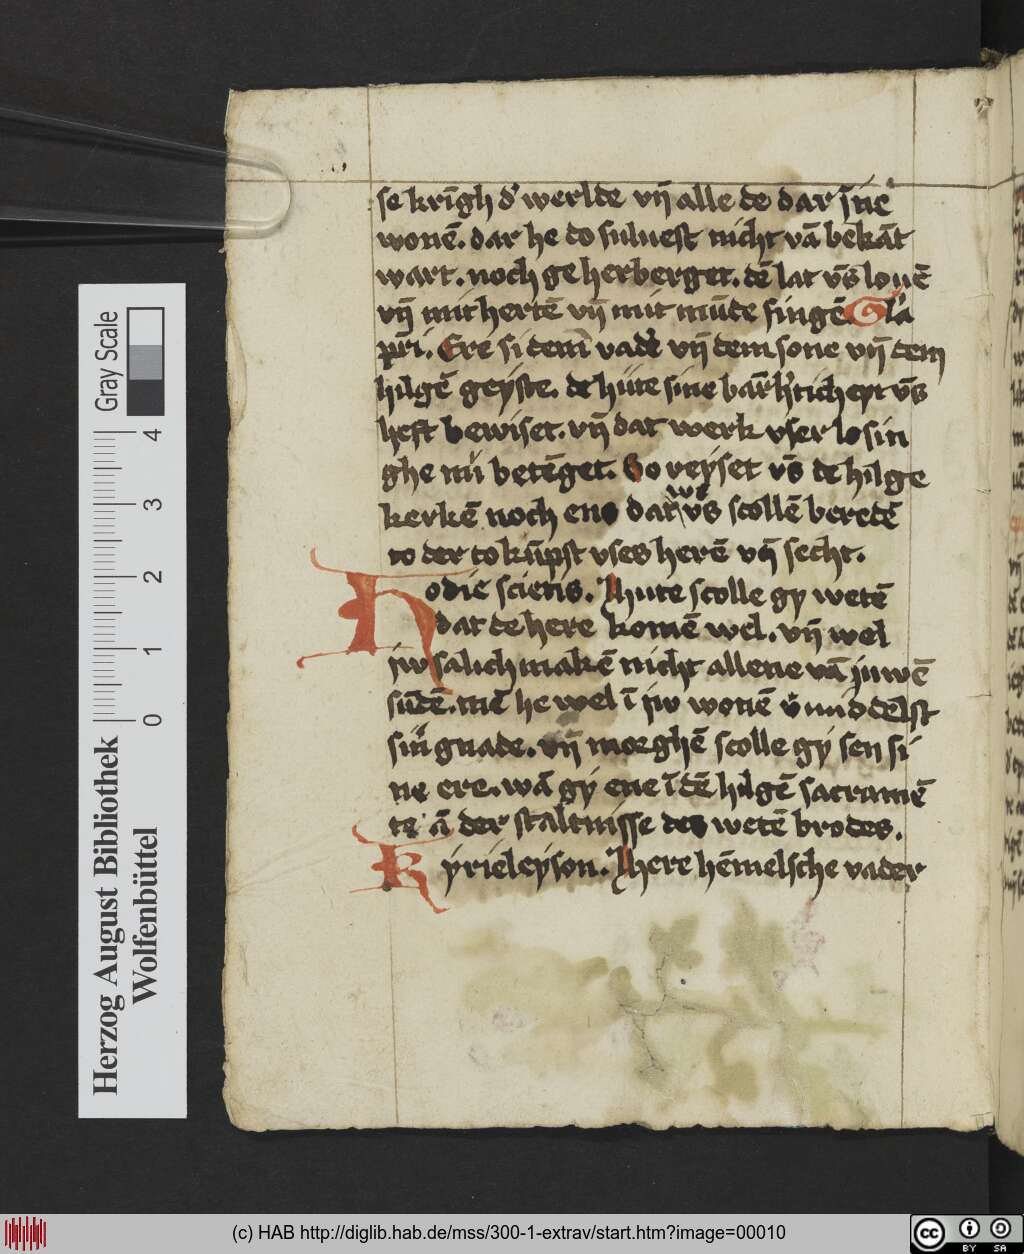 se krīgh d' werlde vn̄ alle de dar s̄ne
wonē. dar he do suluest nicht vā bekāt
wart. noch ge herberget. dē lat v̄s louē
vn̄ mit hertē vn̄ mit mūde singē Gl'a
pr̄i. Ere si dem vad'e vn̄ dem sone vn̄ dem
hilgē geÿste. de hute sine barh'ticheyt v̄s
heft bewiset. vn̄ dat werk vser losin
ghe nu betēget. So veÿset v̄s de hilge
kerkē noch ens dar we v̄s scollē beredē
to der to kūpst vses herē vn̄ secht.
Hodie scietis. Jhute scolle gy wetē
dat de here komē wel. vn̄ wel
jw salich makē nicht allene vā juwē
sūdē. mē he wel ī jw wonē v̓mid dēlst
sin̓ gnade. vn̄ morghē scolle gÿ sen si
ne ere. wā gÿ ene ī dē hilgē sacramē
te ā der staltnisse des wetē brodes.
Kÿrieleÿson. Jhere hēmelsche vader
Gray Scale
0 1 2 3 4
Herzog August Bibliothek
Wolfenbüttel
(c) HAB http://diglib.hab.de/mss/300-1-extrav/start.htm?image=00010
cc BY SA